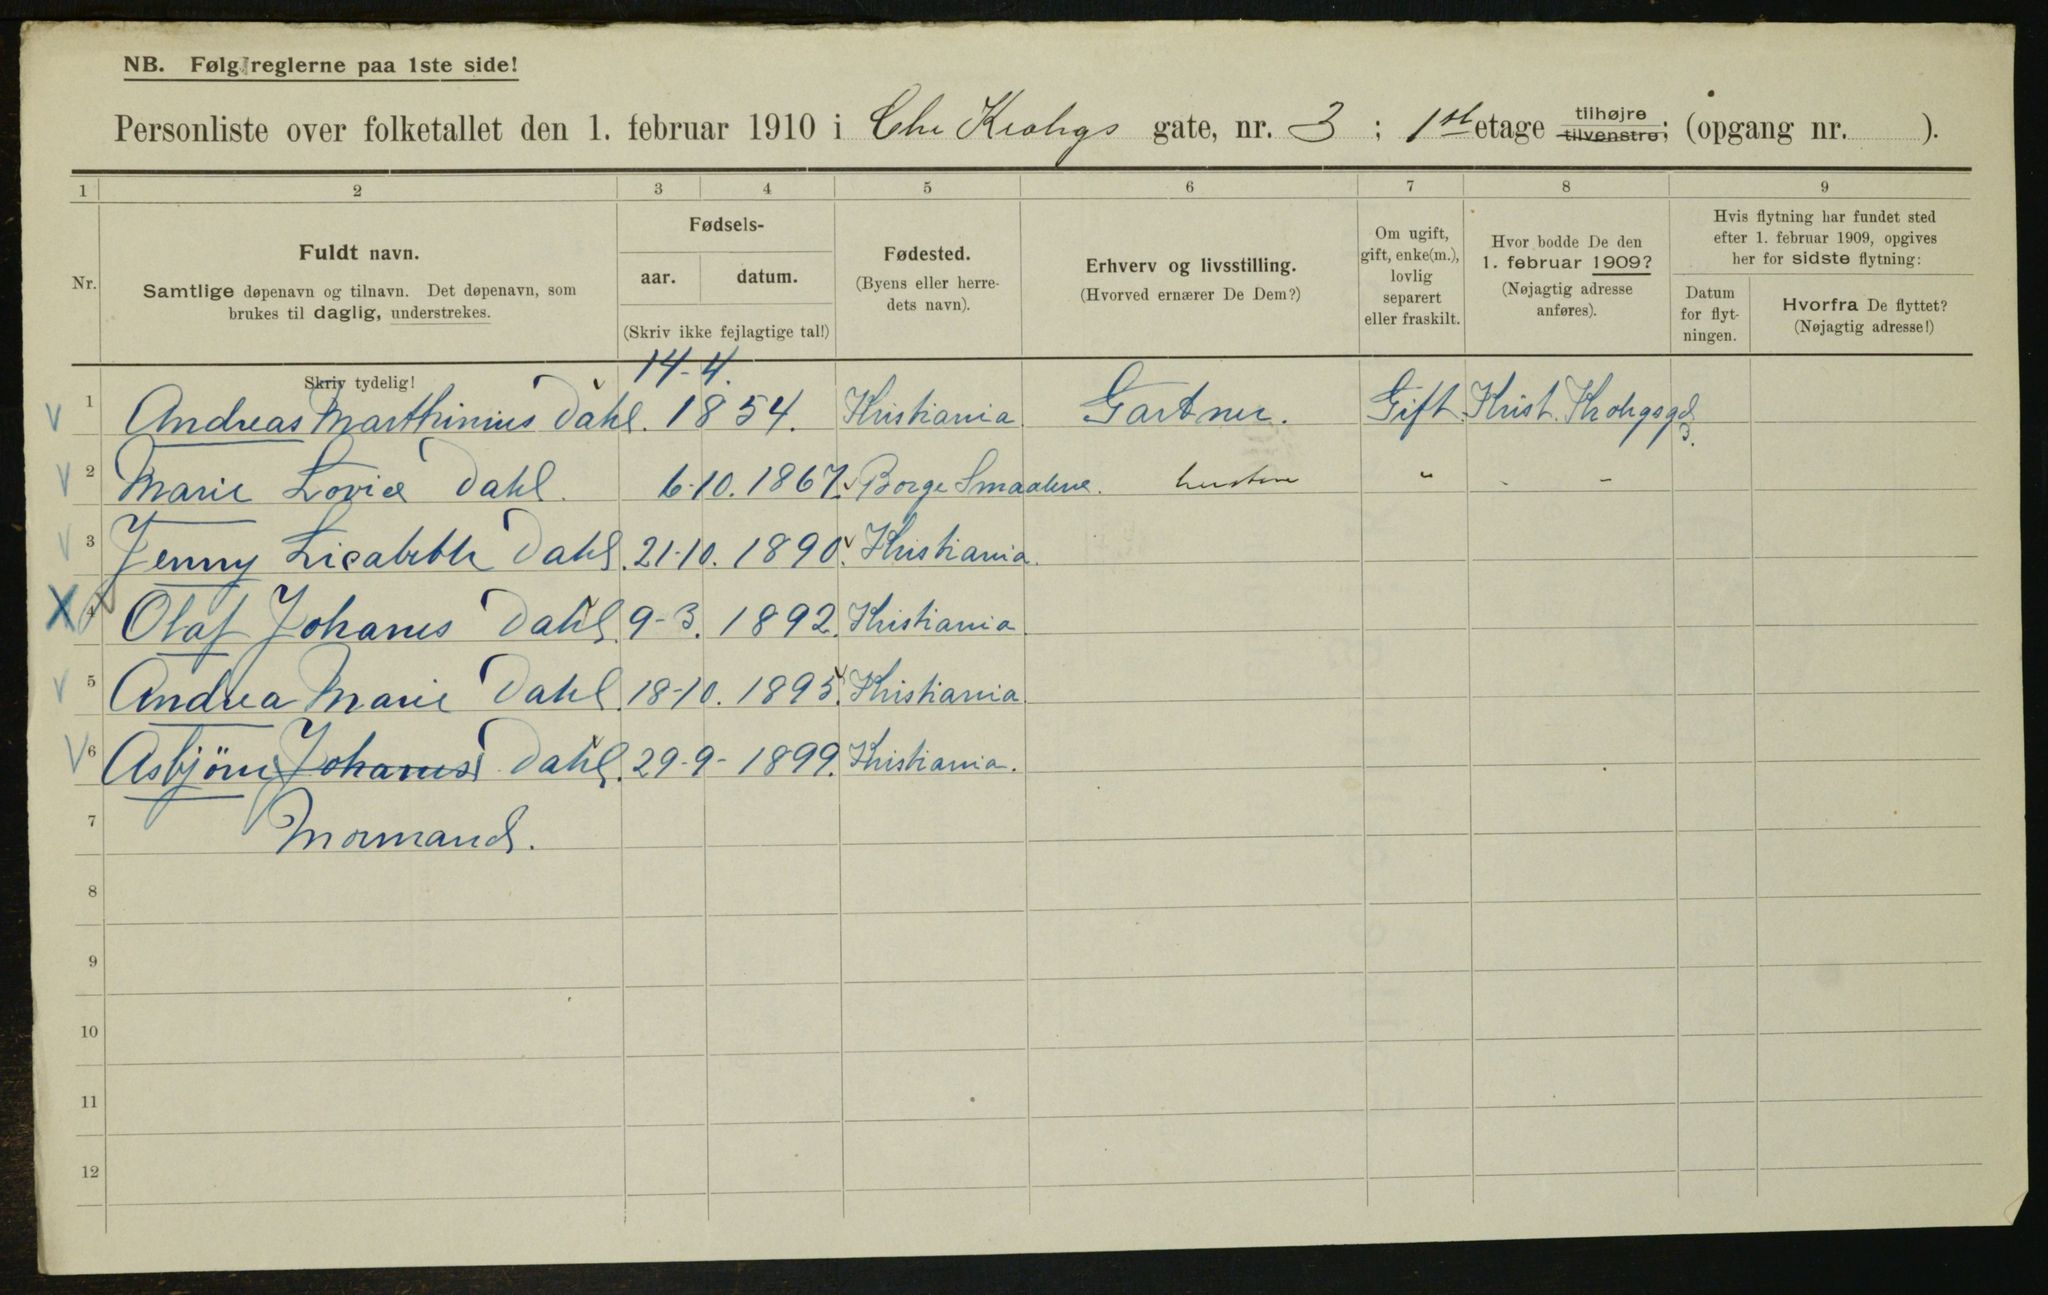 NB. Følg reglerne paa 1ste side!
Personliste over folketallet den 1. februar 1910 i Chr Krohgs gate, nr. 3 ; 1st etage tilhøjre tilvenstre; (opgang nr. ).
1 2 3 4 5 6 7 8 9
Nr.
Fuldt navn.
Samtlige døpenavn og tilnavn. Det døpenavn, som
brukes til daglig, understrekes.
Skriv tydelig!
Fødsels-
aar. datum.
(Skriv ikke fejlagtige tal!)
Fødested.
(Byens eller herre-
dets navn).
Erhverv og livsstilling.
(Hvorved ernærer De Dem?)
Om ugift,
gift, enke(m.),
lovlig
separert
eller fraskilt.
Hvor bodde De den
1. februar 1909?
(Nøjagtig adresse
anføres).
Hvis flytning har fundet sted
efter 1. februar 1909, opgives
her for sidste flytning:
Datum
for flyt-
ningen.
Hvorfra De flyttet?
(Nøjagtig adresse!)
14-4.
1 Andreas Marthinius Dahl. 1854. Kristiania. Gartner. Gift. Krist. Krohgsgd 3.
2 Marie Lovise Dahl. 6-10. 1867. Borge Smaalene. hustru " - -
3 Jenny Lisabeth Dahl. 21-10. 1890. Kristiania.
4 Olaf Johanes Dahl. 9-3. 1892. Kristiania.
5 Andrea Marie Dahl. 18-10. 1895. Kristiania.
6 Asbjörn Johanes Dahl. 29-9- 1899. Kristiania.
7 Mormand.
8
9
10
11
12